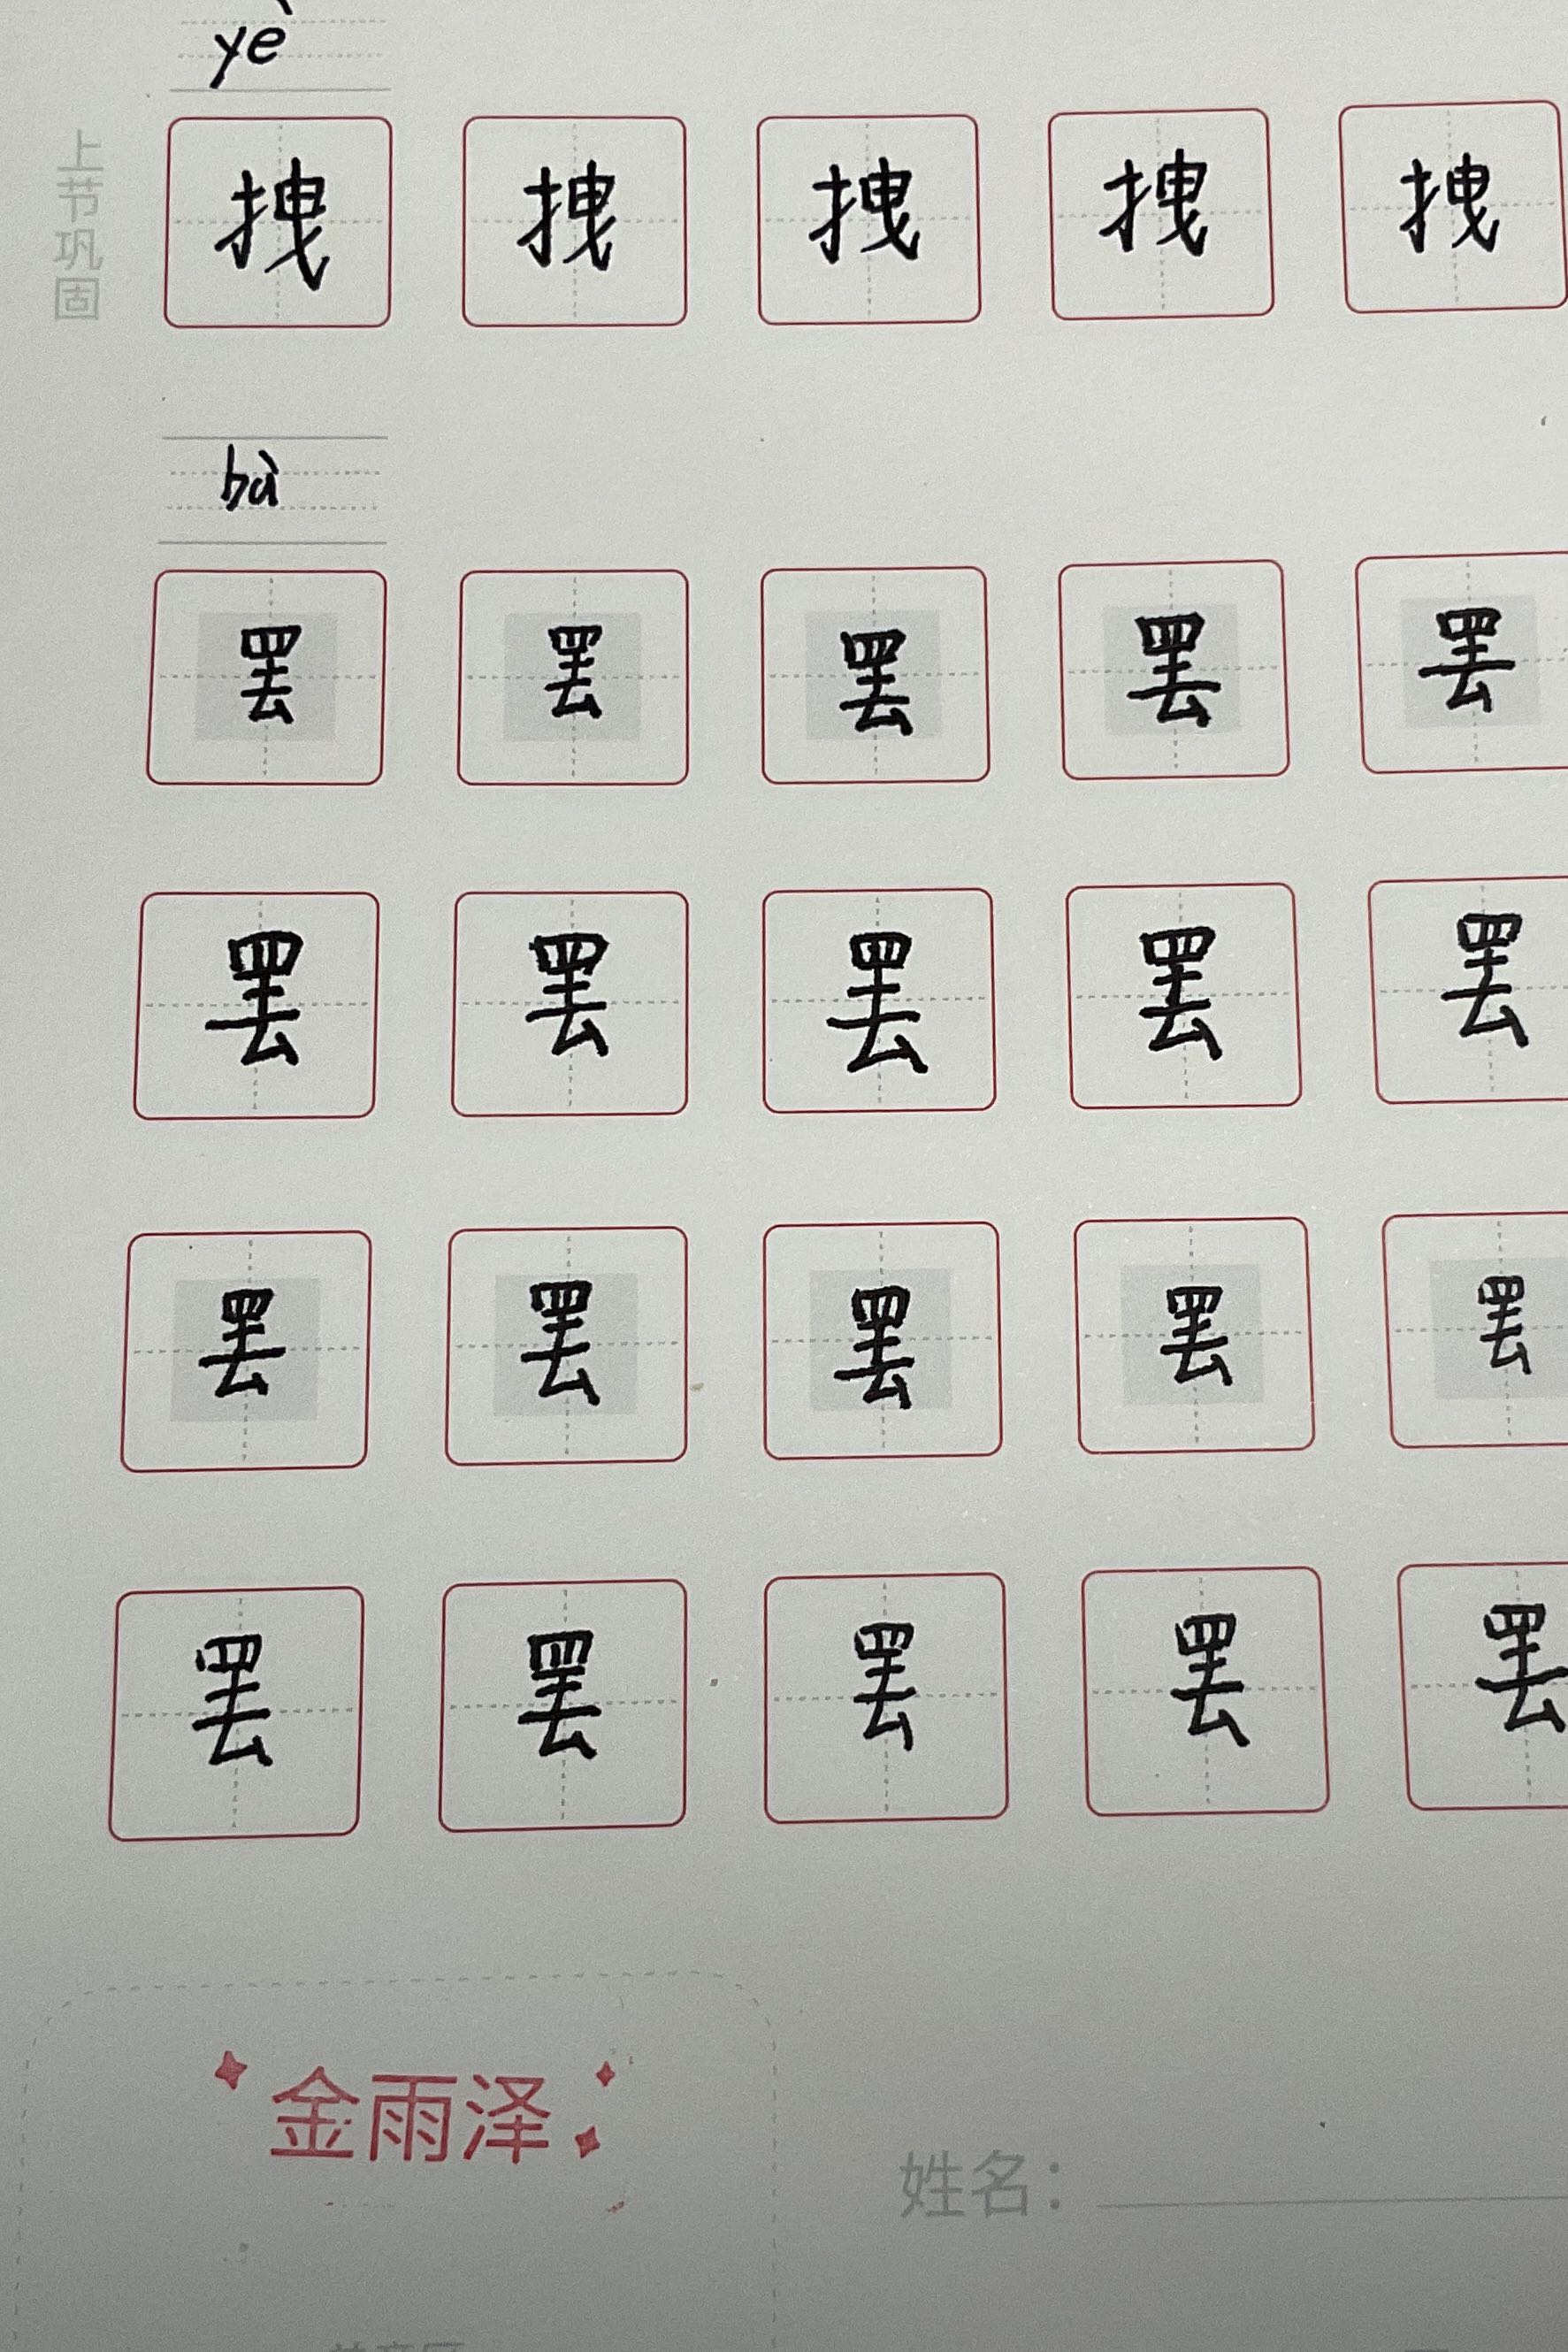 yè
上节巩固
拽 拽 拽 拽 拽
bà
罢 罢 罢 罢 罢
罢 罢 罢 罢 罢
罢 罢 罢 罢 罢
罢 罢 罢 罢 罢
金雨泽
姓名：